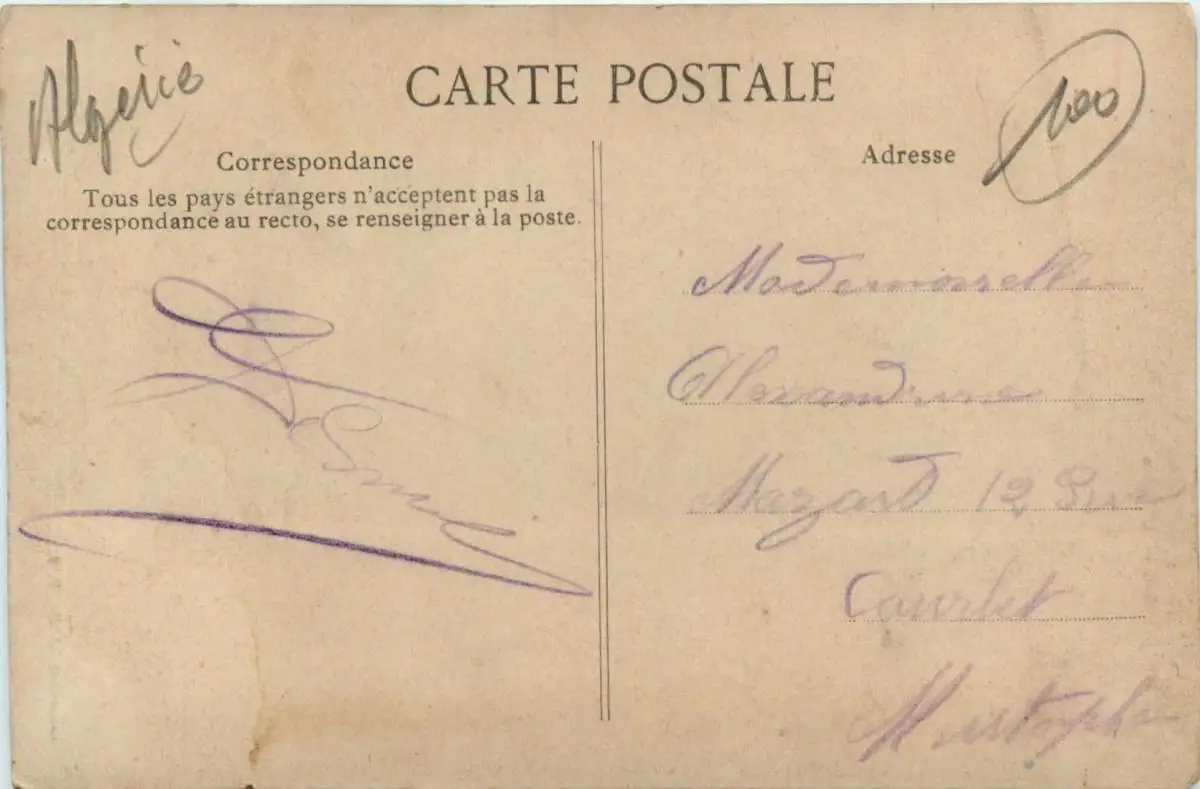 Algérie
CARTE POSTALE
100
Correspondance
Tous les pays étrangers n'acceptent pas la
correspondance au recto, se renseigner à la poste.
Adresse
Mademoiselle
Alexandrine
Mozart 12, Rue
Courbet
Mustapha